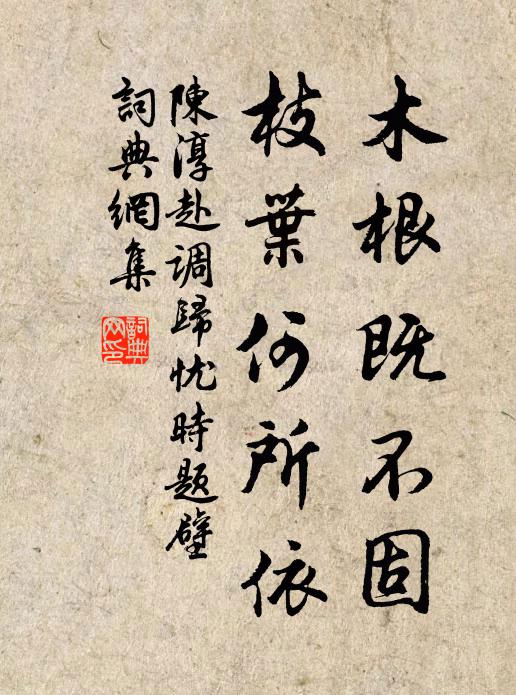 木根既不固
枝葉何所依
陳淳赴調歸忧時題壁
詞典網集
詞典
网印